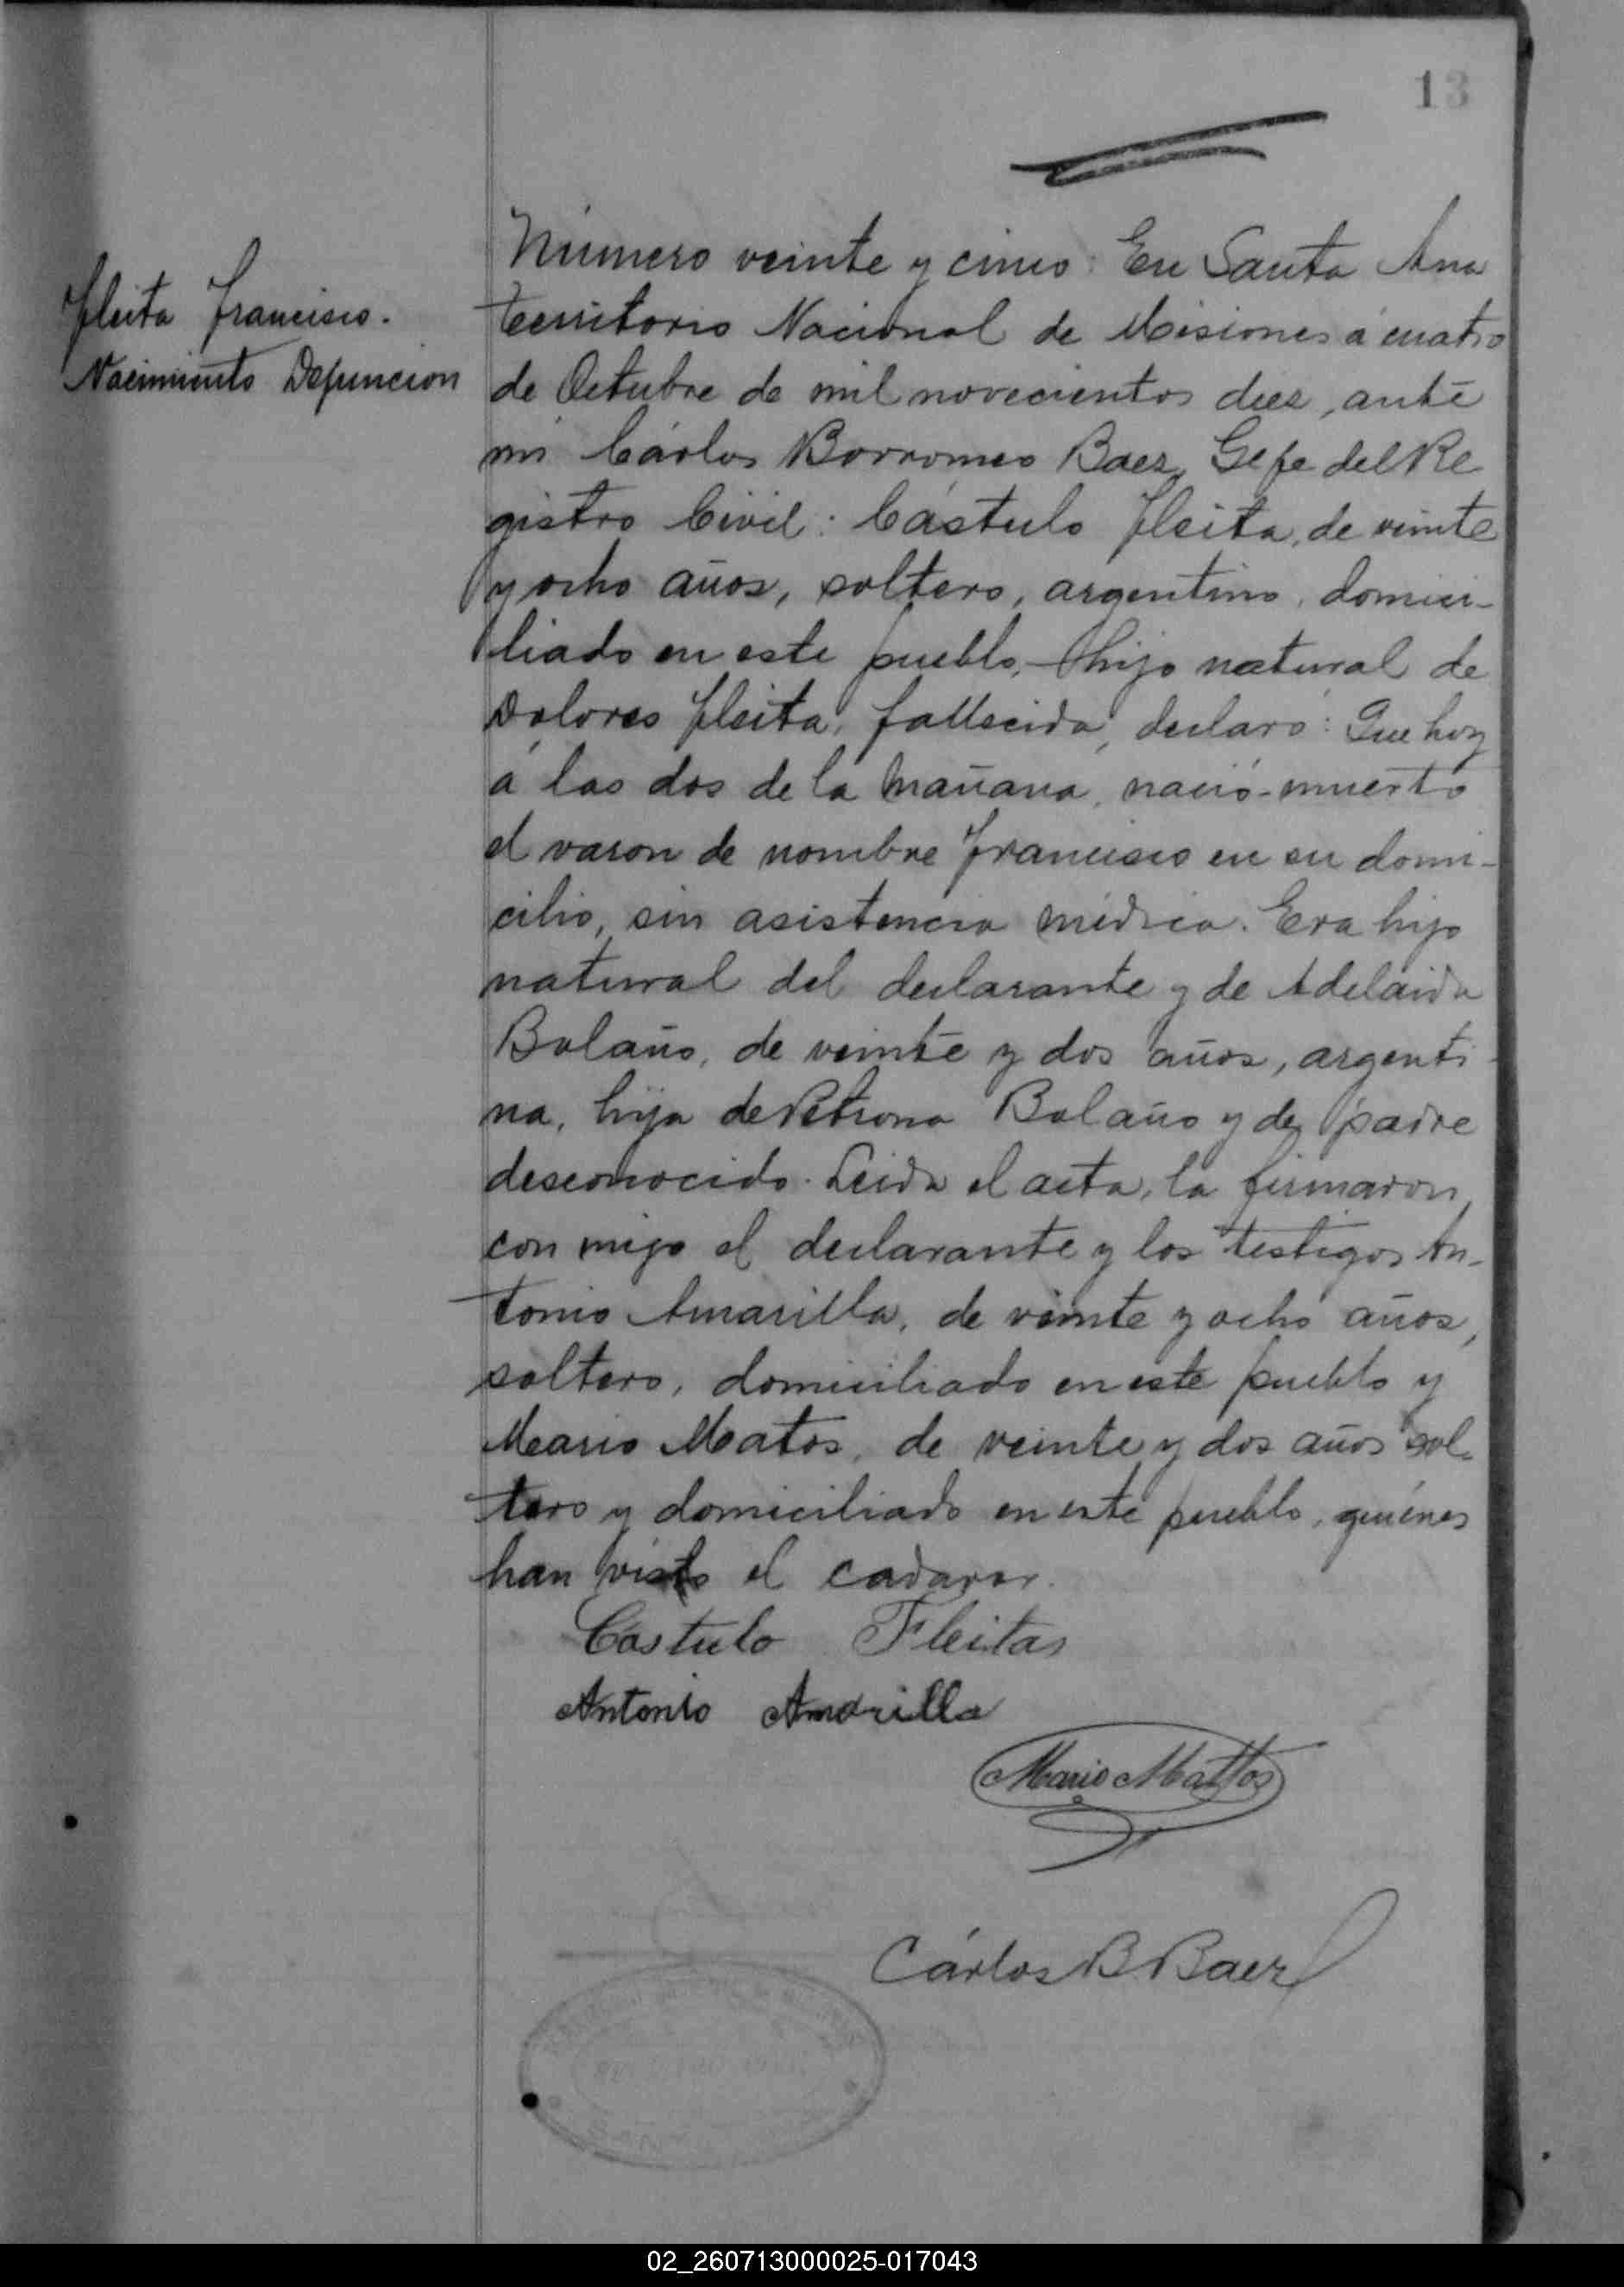 13
Fleita Francisco.
Nacimiento Defuncion
Número veinte y cinco: En Santa Ana
Territorio Nacional de Misiones á cuatro
de Octubre de mil novecientos diez, ante
mi Cárlos Borromeo Baez, Gefe del Re
gistro Civil: Cástulo Fleita, de veinte
y ocho años, soltero, argentino, domici-
liado en este pueblo, hijo natural de
Dolores Fleita, fallecida, declaró: Que hoy
á las dos de la mañana, nació muerto
el varon de nombre Francisco en su domi-
cilio, sin asistencia médica. Era hijo
natural del declarante y de Adelaida
Bolaño, de veinte y dos años, argenti
na, hija de Petrona Bolaño y de padre
desconocido. Leida el acta, la firmaron,
con migo el declarante y los testigos An-
tonio Amarilla, de veinte y ocho años,
soltero, domiciliado en este pueblo y
Mario Matos, de veinte y dos años sol-
tero y domiciliado en este pueblo, quienes
han visto el cadaver.
Castulo Fleitas
Antonio Amarilla
Mario Mattos
Cárlos B Baez
02_260713000025-017043